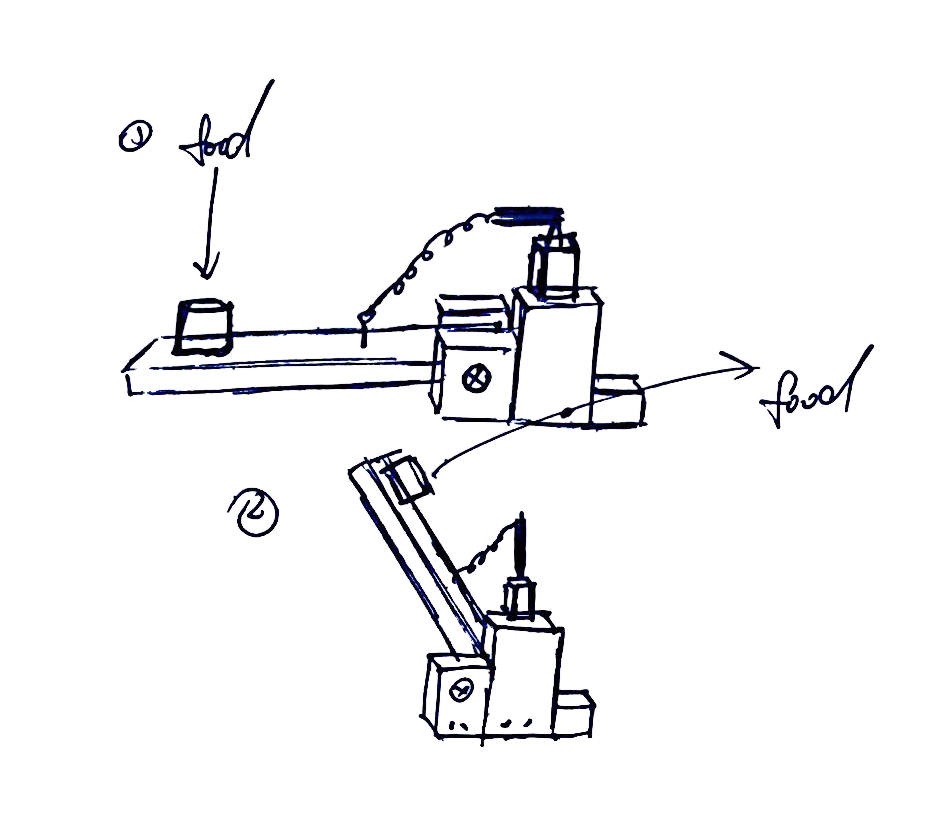 ① food
food
②